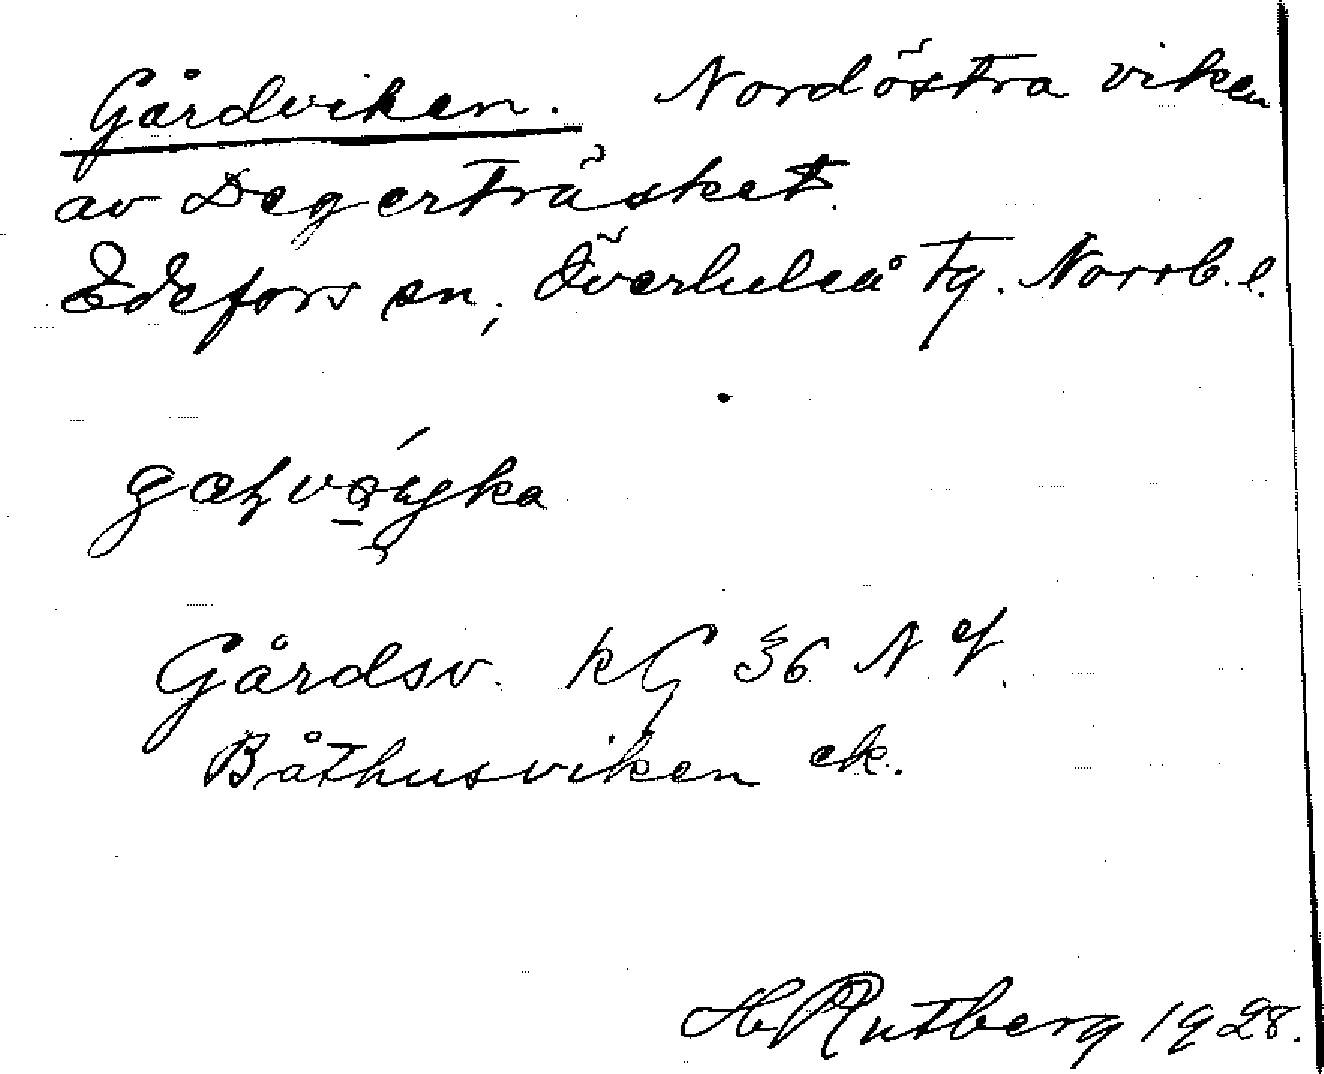 Gårdviken. Nordöstra viken
av Degerträsket.
Edefors sn, Överluleå tg. Norrb. l.
Gårdsv. kG 36 N
Båthusviken ek.
H Rutberg 1928.